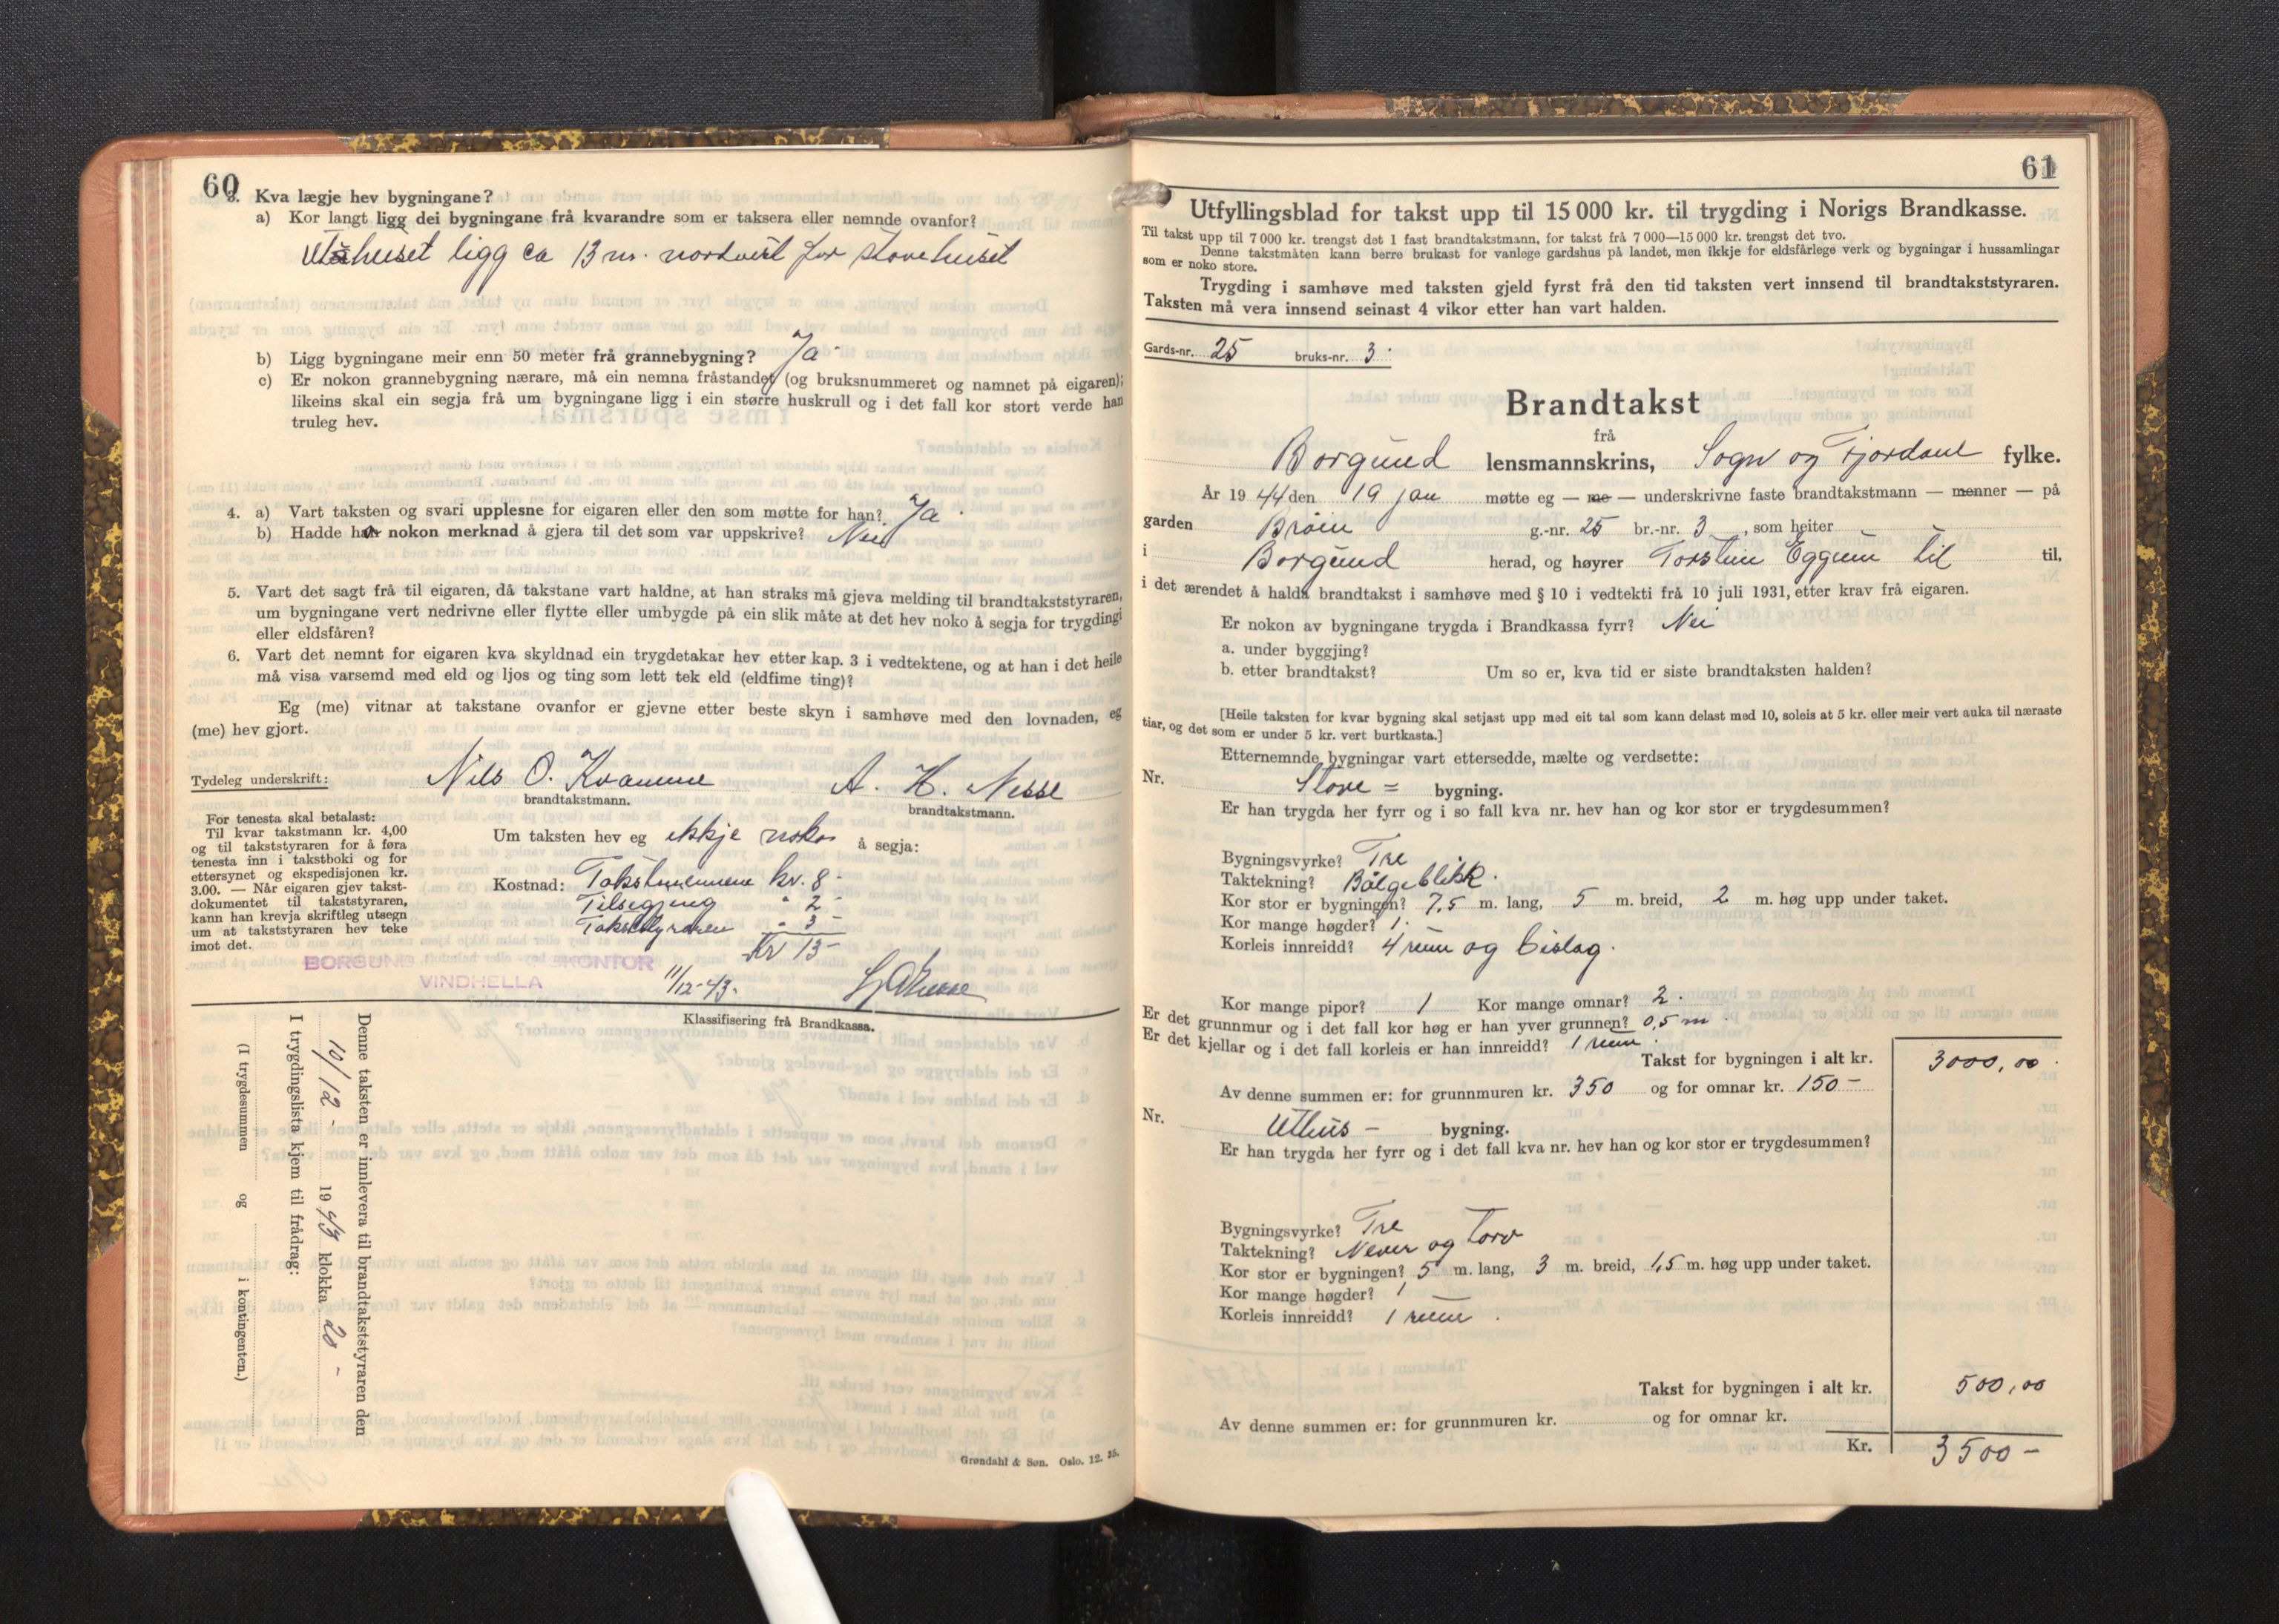 60
3. Kva lægje hev bygningane?
a) Kor langt ligg dei bygningane frå kvarandre som er taksera eller nemnde ovanfor?
Uthuset ligg ca 13 m. nordvest for stovehuset
b) Ligg bygningane meir enn 50 meter frå grannebygning? Ja
c) Er nokon grannebygning nærare, må ein nemna fråstandet (og bruksnummeret og namnet på eigaren);
likeins skal ein segja frå um bygningane ligg i ein større huskrull og i det fall kor stort verde han
truleg hev.
4. a) Vart taksten og svari upplesne for eigaren eller den som møtte for han? Ja
b) Hadde han nokon merknad å gjera til det som var uppskrive? Nei
5. Vart det sagt frå til eigaren, då takstane vart haldne, at han straks må gjeva melding til brandtakststyraren,
um bygningane vert nedrivne eller flytte eller umbygde på ein slik måte at det hev noko å segja for trygdingi
eller eldsfåren?
6. Vart det nemnt for eigaren kva skyldnad ein trygdetakar hev etter kap. 3 i vedtektene, og at han i det heile
må visa varsemd med eld og ljos og ting som lett tek eld (eldfime ting)?
Eg (me) vitnar at takstane ovanfor er gjevne etter beste skyn i samhøve med den lovnaden, eg
(me) hev gjort.
Tydeleg underskrift: Nils O. Kvamme A. H. Nesse
brandtakstmann. brandtakstmann.
For tenesta skal betalast:
Til kvar takstmann kr. 4,00
og til takststyraren for å føra
tenesta inn i takstboki og for
ettersynet og ekspedisjonen kr.
3.00. — Når eigaren gjev takst-
dokumentet til takststyraren,
kann han krevja skriftleg utsegn
um at takststyraren hev teke
imot det.
Um taksten hev eg ikkje noko å segja:
Kostnad: Takstmennene kr. 8-
Tilsegjing " 2-
Takststyraren " 3-
Kr 13-
BORGUND KONTOR
VINDHELLA
11/12-43.
Klassifisering frå Brandkassa.
Denne taksten er innlevera til brandtakststyraren den
10/12- 1943 klokka 20-
I trygdingslista kjem til frådrag:
(I trygdesummen og i kontingenten.)
Grøndahl & Søn. Oslo. 12. 35.
61
Utfyllingsblad for takst upp til 15 000 kr. til trygding i Norigs Brandkasse.
Til takst upp til 7 000 kr. trengst det 1 fast brandtakstmann, for takst frå 7 000—15 000 kr. trengst det tvo.
Denne takstmåten kann berre brukast for vanlege gardshus på landet, men ikkje for eldsfårlege verk og bygningar i hussamlingar
som er noko store.
Trygding i samhøve med taksten gjeld fyrst frå den tid taksten vert innsend til brandtakststyraren.
Taksten må vera innsend seinast 4 vikor etter han vart halden.
Gards-nr. 25 bruks-nr. 3
Brandtakst
frå
Borgund lensmannskrins, Sogn og Fjordane fylke.
År 1944 den 19 jan møtte eg — me — underskrivne faste brandtakstmann — menner — på
garden Brøin g.-nr. 25 br.-nr. 3, som heiter
i Borgund herad, og høyrer Torstein Eggum til til,
i det ærendet å halda brandtakst i samhøve med § 10 i vedtekti frå 10 juli 1931, etter krav frå eigaren.
Er nokon av bygningane trygda i Brandkassa fyrr? Nei
a. under byggjing?
b. etter brandtakst? Um so er, kva tid er siste brandtaksten halden?
[Heile taksten for kvar bygning skal setjast upp med eit tal som kann delast med 10, soleis at 5 kr. eller meir vert auka til næraste
tiar, og det som er under 5 kr. vert burtkasta.]
Etternemnde bygningar vart ettersedde, mælte og verdsette:
Nr. Stove = bygning.
Er han trygda her fyrr og i so fall kva nr. hev han og kor stor er trygdesummen?
Bygningsvyrke? Tre
Taktekning? Bølgeblikk.
Kor stor er bygningen? 7,5 m. lang, 5 m. breid, 2 m. høg upp under taket.
Kor mange høgder? 1.
Korleis innreidd? 4 rum og bislag.
Kor mange pipor? 1 Kor mange omnar? 2.
Er det grunnmur og i det fall kor høg er han yver grunnen? 0,5 m.
Er det kjellar og i det fall korleis er han innreidd? 1 rum.
Takst for bygningen i alt kr. 3000,00
Av denne summen er: for grunnmuren kr. 350 og for omnar kr. 150-
Nr. Uthus - bygning.
Er han trygda her fyrr og i det fall kva nr. hev han og kor stor er trygdesummen?
Bygningsvyrke? Tre
Taktekning? Never og torv
Kor stor er bygningen? 5 m. lang, 3 m. breid, 1,5 m. høg upp under taket.
Kor mange høgder? 1
Korleis innreidd? 1 rum.
Takst for bygningen i alt kr. 500,00
Av denne summen er: for grunnmuren kr. og for omnar kr.
Kr. 3500-